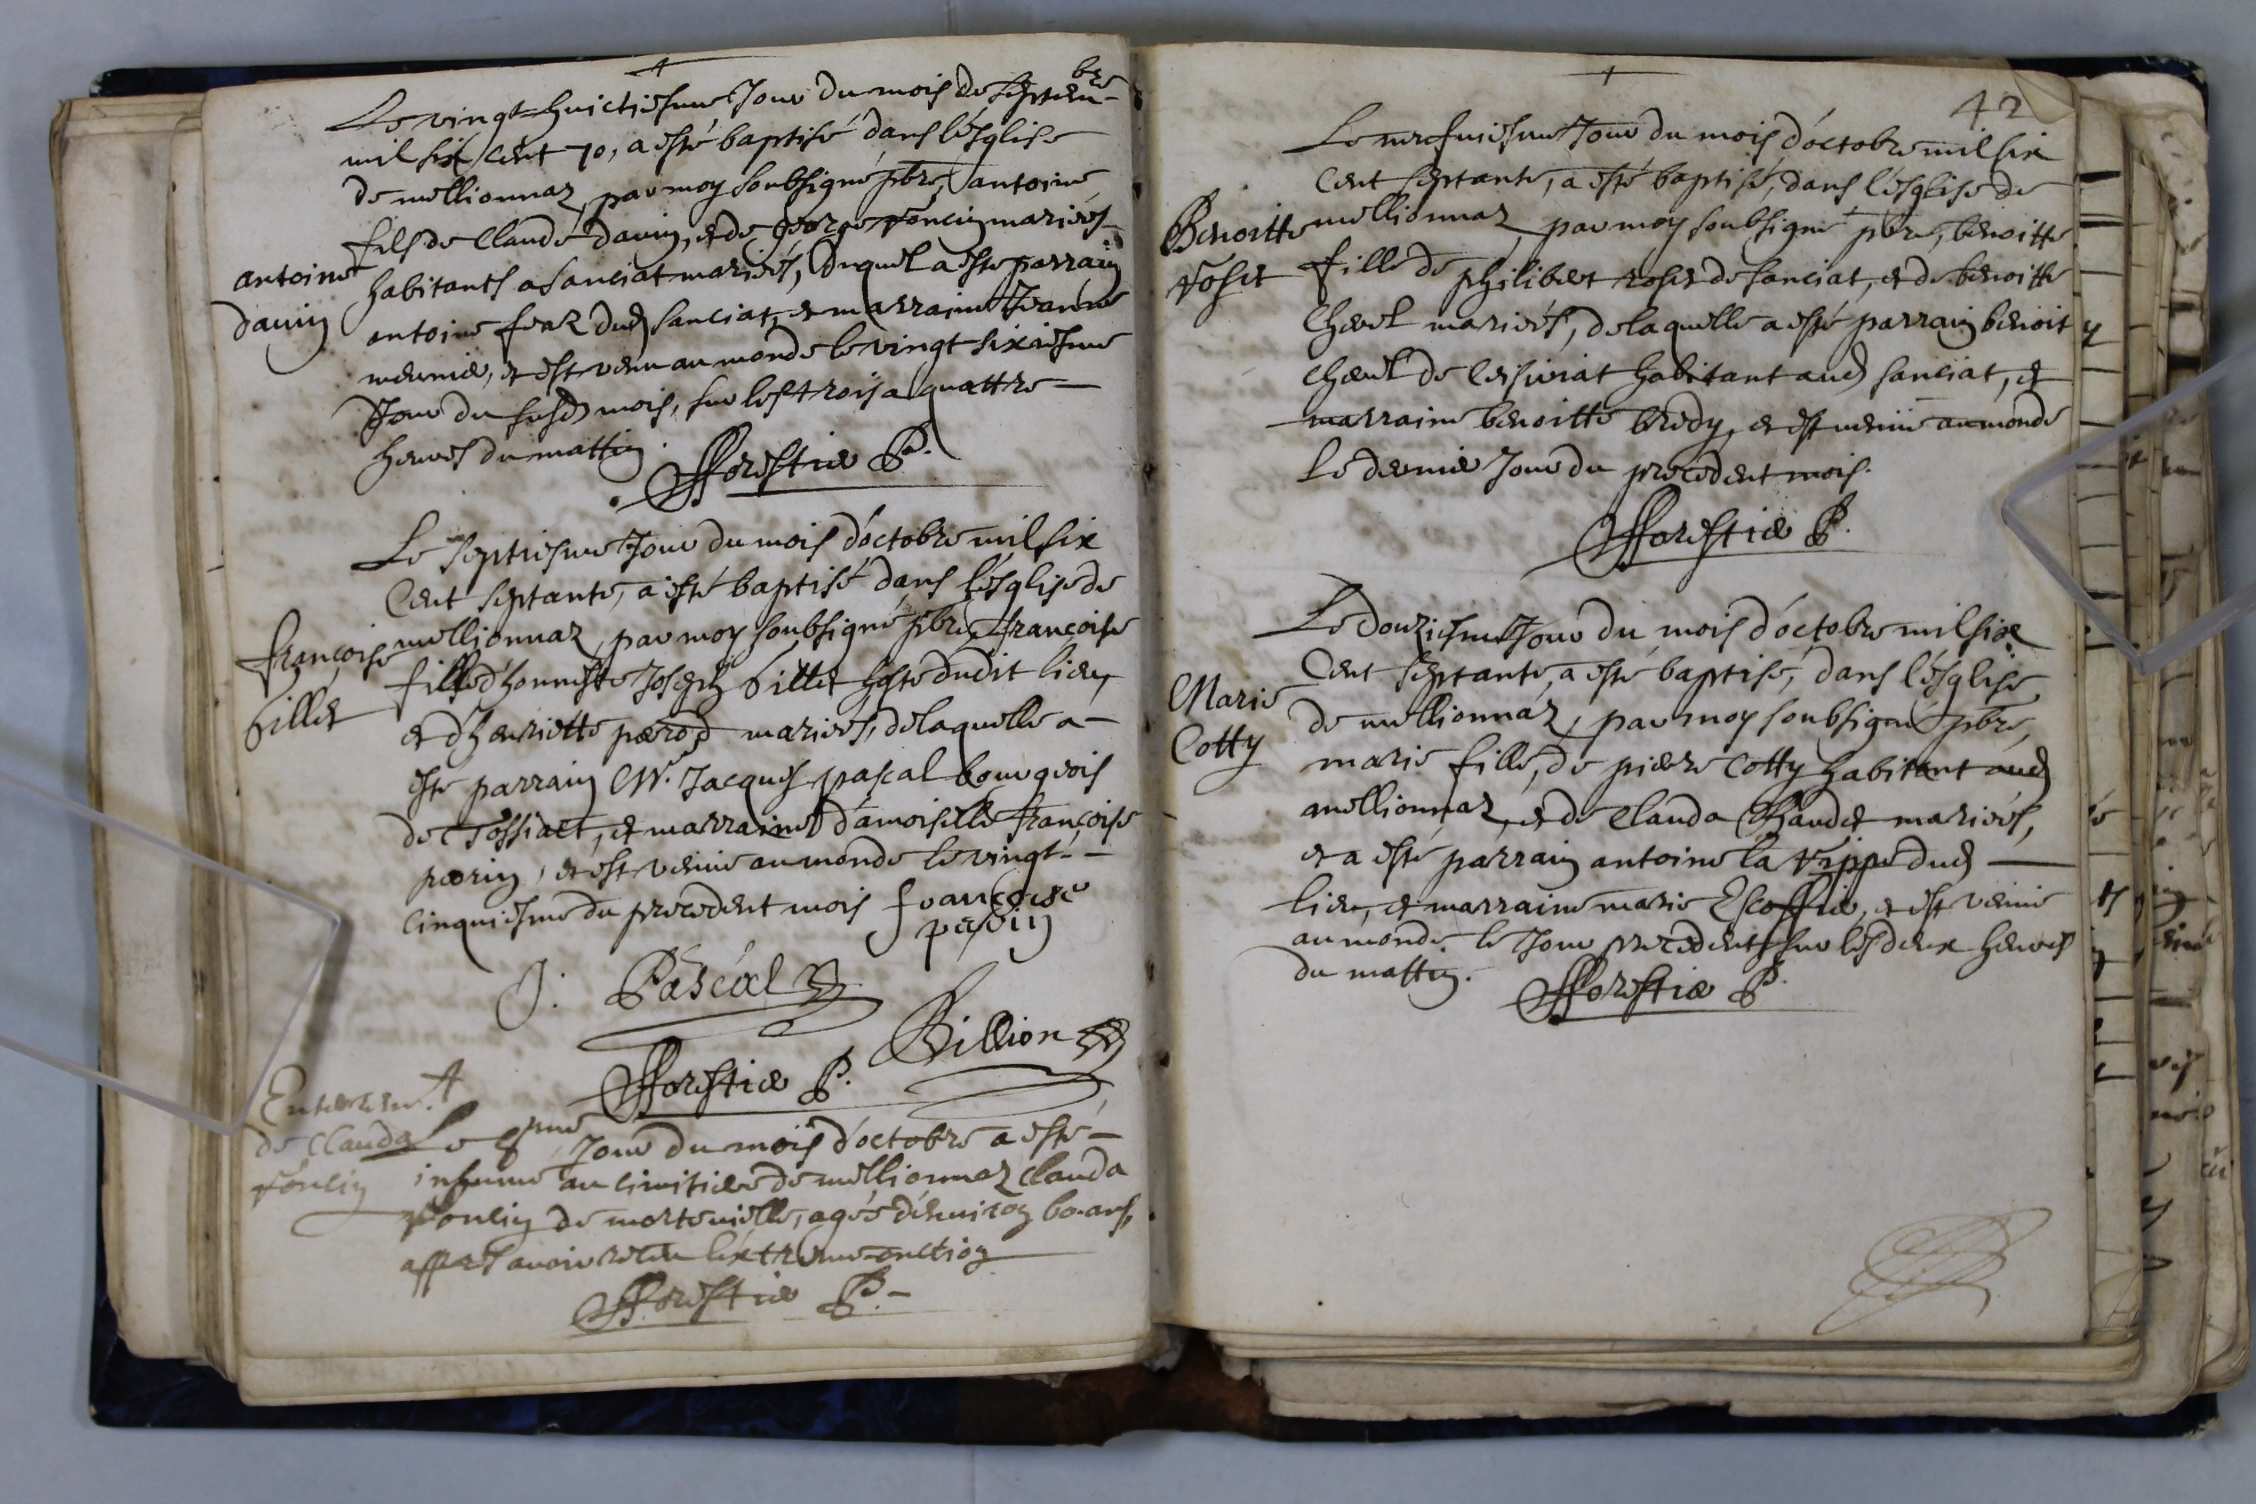 Le vingt-huictiesme Jour du mois de septem-bre
mil six cent 70, a esté baptisé dans l'ésglise
de meillionnaz, par moy soubsigné pbre, antoine
fils de Claude dauin, et de george Poncin mariés
antoine
dauin
habitants a sanciat mariés, duquel a esté parrain
antoine feaz dud sanciat, et marraine Jeanne
meunie, et est venu au monde le vingt sixiesme
Jour du susd mois, sur les trois a quattre
heures du mattin.
fforestier P.
Le septiesme Jour du mois d'octobre mil six
Cent septante, a esté baptisé dans l'ésglise de
françoise
billet
meillionnaz, par moy soubsigné pbre, françoise
fille d'honneste Joseph billet hoste dudit lieu,
et d'henriette perrod mariés, de laquelle a
esté parrain Mr. Jacques pascal bourgeois
de Tossiact, et marraine damoiselle françoise
perrin, et est venue au monde le vingt-
cinquiesme du precedent mois françoise
perrin
J. Pascal
Billion
fforestier P.
Enterrem.t
de Clauda
Poncin
Le 8me Jour du mois d'octobre a esté
inhumé au cimitiere de meillionnaz Clauda
Poncin de mortevielle, agée d'enuiron 60 ans,
appres auoir receu l'extreme onction
fforestier P.
42
Le onziesme Jour du mois d'octobre mil six
Cent septante, a esté baptisé, dans l'ésglise de
Benoitte
Roset
meillionnaz, par moy soubsigné pbre, benoitte
fille de philibert roset de sanciat, et de benoitte
Cheuel mariés, de laquelle a esté parrain benoit
Cheuel de Ceisiriat habitant aud sanciat, et
marraine benoitte bredy, et est venue au monde
le dernier Jour du precedent mois.
fforestier P.
Le douziesme Jour du mois d'octobre mil six
Cent septante, a esté baptisé, dans l'ésglise
Marie
Cotty
de meillionnaz, par moy soubsigné pbre,
marie fille, de pierre Cotty habitant aud
meillionnaz, et de Clauda Chaudet mariés,
et a esté parrain antoine la Vippe dud
lieu, et marraine marie Escoffier, et est venue
au monde le Jour precedent, sur les deux heures
du mattin.
fforestier P.